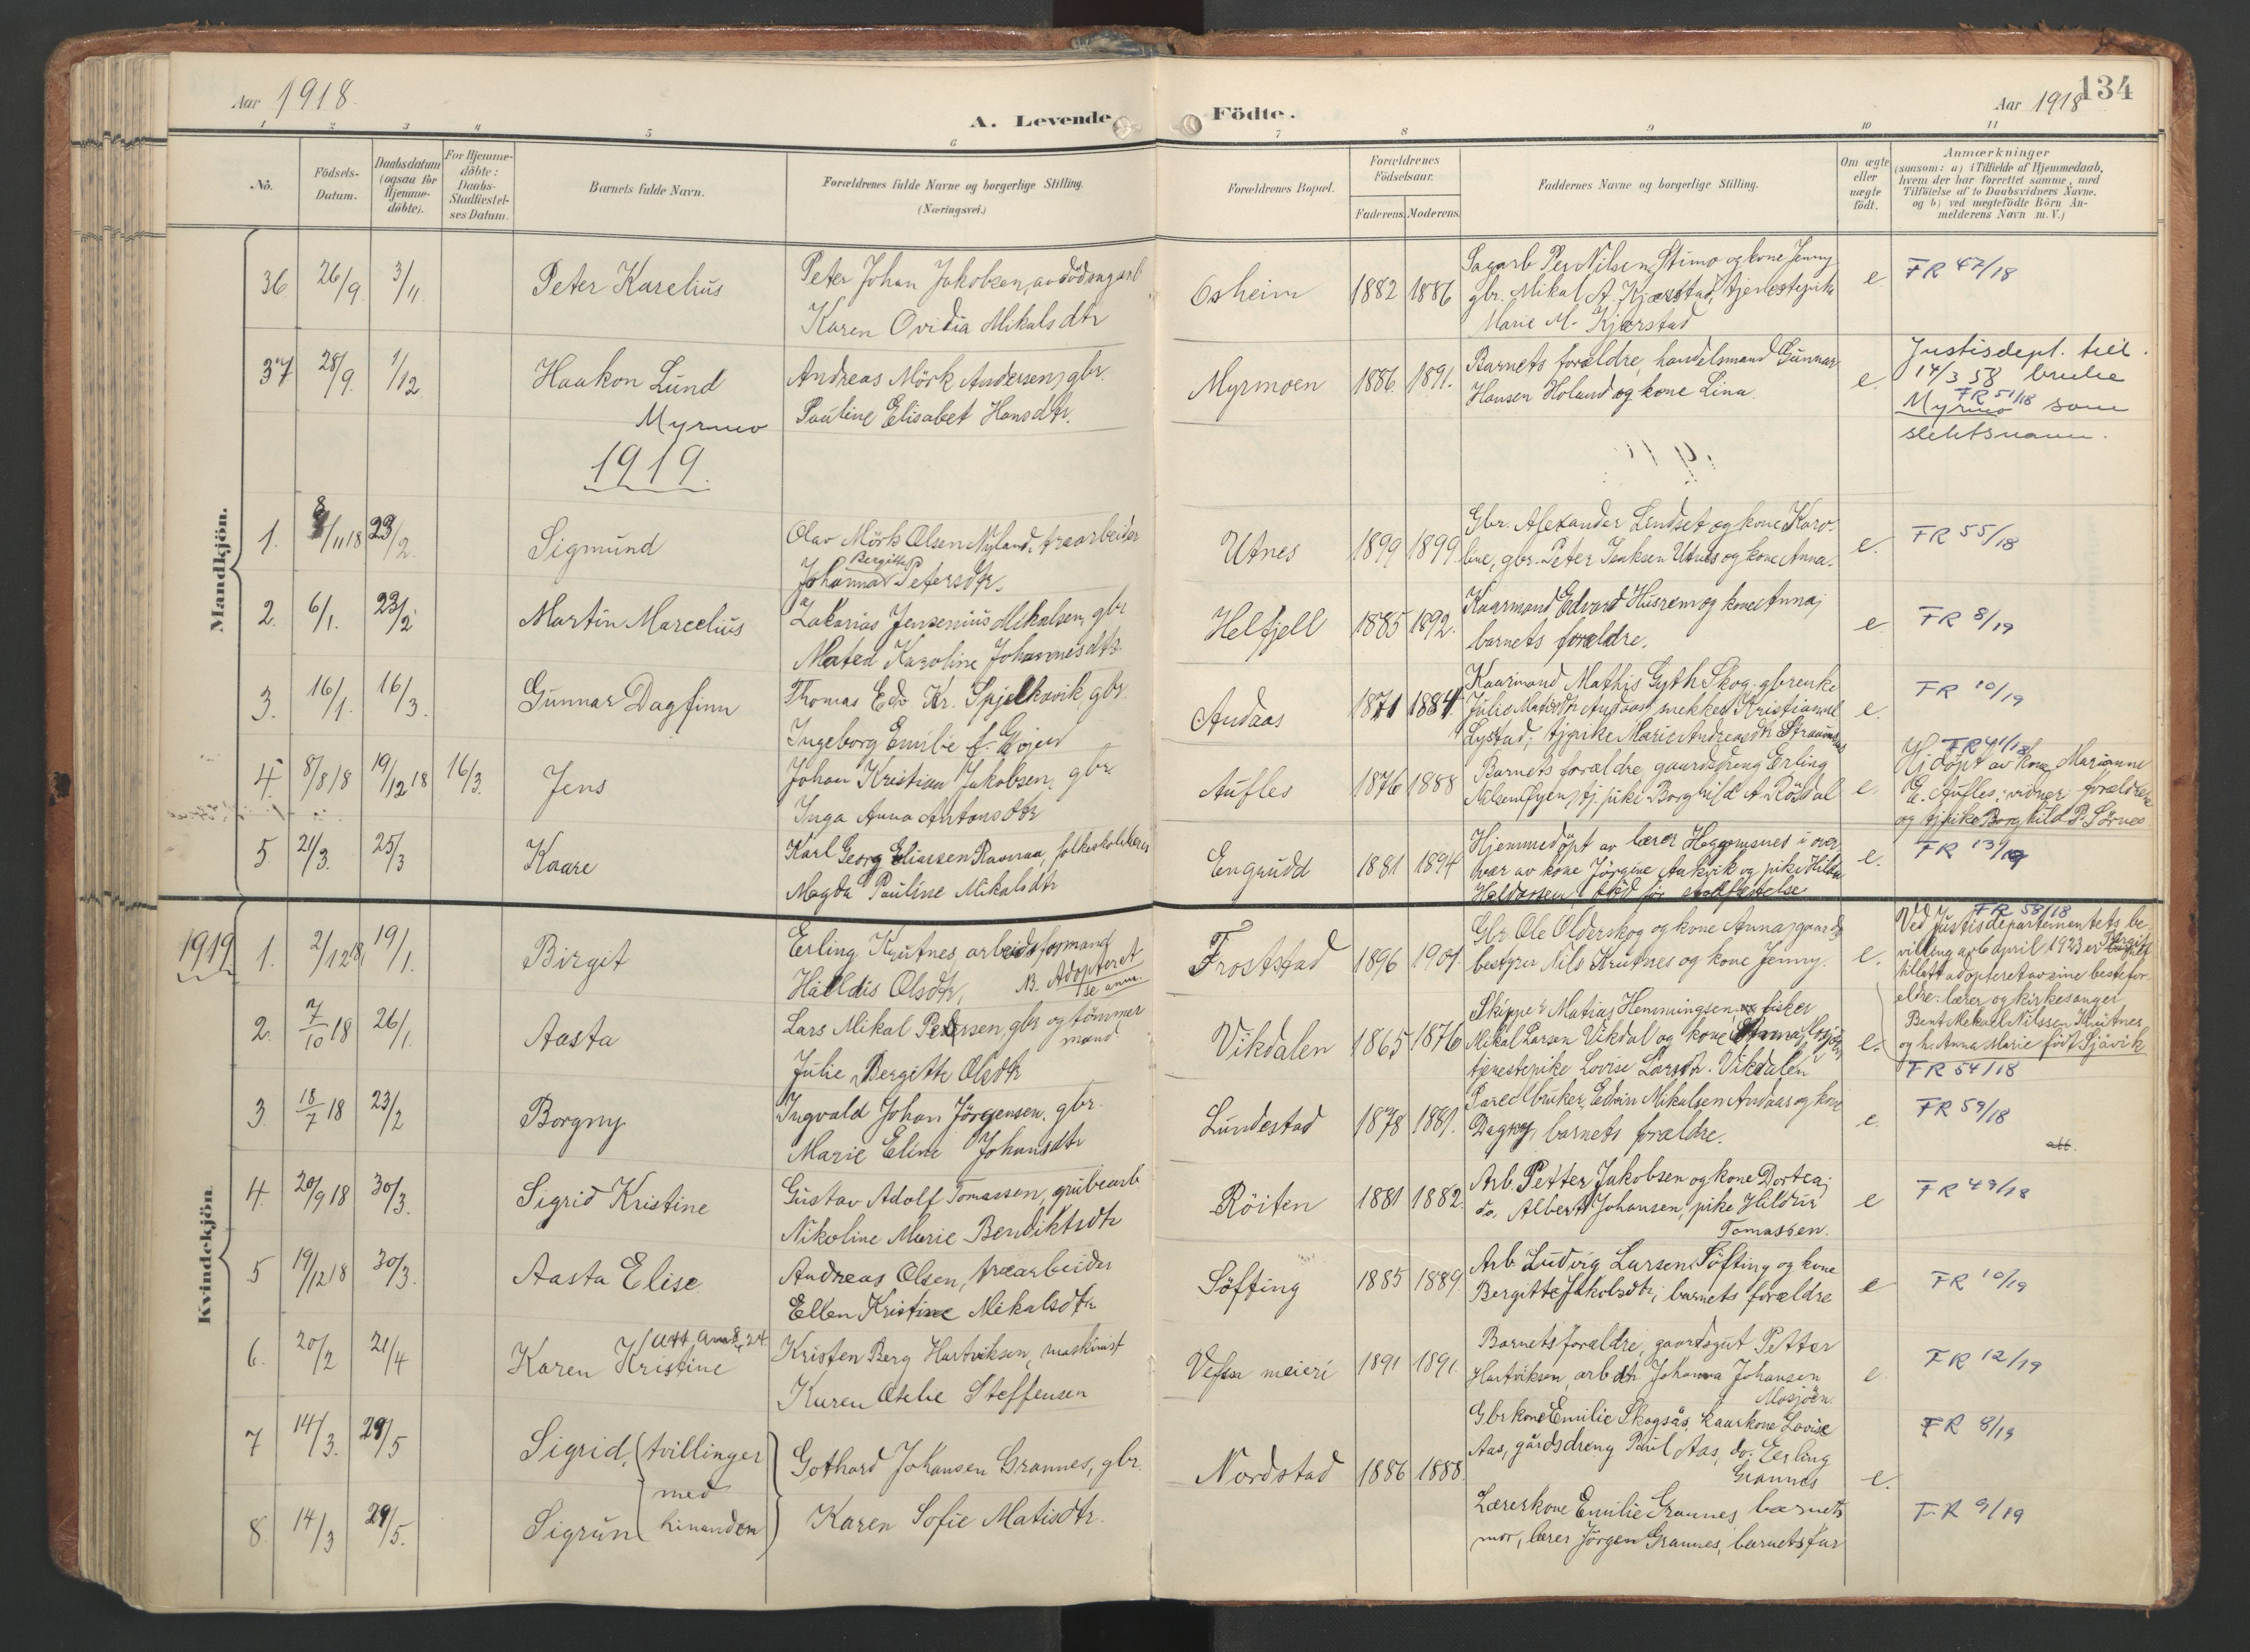 Aar 1918.
A. Levende
Födte.
Aar 1918
134
1 2 3 4 5 6 7 8 9 10 11
No.
Födsels-
Datum.
Daabsdatum
(ogsaa for
Hjemme-
döbte).
For Hjemme-
döbte:
Daabs-
Stadfæstel-
ses Datum.
Barnets fulde Navn.
Forældrenes fulde Navne og borgerlige Stilling.
(Næringsvei.)
Forældrenes Bopæl.
Forældrenes
Födselsaar.
Faderens. Moderens.
Faddernes Navne og borgerlige Stilling.
Om ægte
eller
uægte
födt.
Anmærkninger
(saasom: a) i Tilfælde af Hjemmedaab,
hvem der har forrettet samme, med
Tilföielse af to Daabsvidners Navne.
og b) ved uægtefödte Börn An-
melderens Navn m. V.)
Mandkjön.
36 26/9 3/11 Peter Karelius
Peter Johan Jakobsen,
Karen Ovidia Mikalsdtr
Osheim 1882 1886
Sagarb Per Nilsen Stimo og kone Jenny
gbr. Mikal A. Kjærstad, tjenestepike
Marie M. Kjærstad
e FR 47/18
37 28/9. 1/12 Haakon Lund
Myrmo
Andreas Mörk Andersen, gbr.
Pauline Elisabet Hansdtr.
Myrmoen 1886 1891.
Barnets forældre, handelsmand Gunnar
Hansen Holand og kone Lina.
e.
Justisdept. till.
14/3 58 bruke
FR 51/18
Myrmo som
slektsnavn.
1919.
1. 8/11 18 23/2 Sigmund
Olav Mörk Olsen Nyland, træarbeider
Bergitte
Johanna Petersdtr.
Utnes 1899 1899.
Gbr. Alexander Lindset og kone Karo-
line, gbr. Peter Isaksen Utnes og kone Anna.
e. FR 55/18
2. 6/1. 23/2 Martin Marcelius
Zakarias Jensenius Mikalsen, gbr
Matea Karoline Johannesdtr
Helfjell 1885 1892.
Kaarmand Edvard Husrem og kone Anna;
barnets forældre.
e FR 8/19
3. 16/1. 16/3. Gunnar Dagfinn
Thomas Edv. Kr. Spjelkavik, gbr.
Ingeborg Emilie f.
Andaas 1871 1884.
Kaarmand Mathis Gyth Skog. gbrenke
Julie Andaas, snekker Kristian
Lystad, tj.pike Marie Andreasdtr
e. FR 10/19
4. 8/8 18 19/12 18 16/3. Jens
Johan Kristian Jakobsen, gbr.
Inga Anna Antonsdtr
Aufles 1876 1888
Barnets forældre, gaardsdreng Erling
Nilsen Öyen, tj. pike Borghild A. Rösdal
e.
FR 41/18
Hjdöpt av kone Marianne
E. Aufles; vidner: forældrene
og tj.pike Borghild P. Sörnes
5 21/3. 25/3 Kaare
Karl Georg Eliassen Ravnaa, folkeskolelærer
Magda Pauline Mikalsdtr
Engrudd 1881 1894
Hjemmedöpt av lærer Heggemsnes i over-
vær av kone Jörgine Aukvik og pike Hilda
Haldorsen. Död för stadfæstelse
e. FR 13/19
Kvindekjön.
1919
1. 2/12 18, 19/1. Birgit
Erling Krutnes, arbeidsformand
Halldis Olsdtr, N. Adopteret
se anm
Froststad 1896 1901.
Gbr. Ole Olderskog og kone Anna, gaards-
bestyrer Nils Krutnes og kone Jenny.
e.
FR 58/18
Ved Justisdepartementets be-
villing av 6 april 1923 er Birgit
tillatt adopteret av sine bestefor-
eldre: lærer og kirkesanger
Bent Mekael Nilssen Krutnes
og h. Anna Marie födt Sjåvik
2. 7/10 18 26/1. Aasta
Lars Mikal Petersen, gbr og tömmer
mand.
Julie Bergitte Olsdtr
Vikdalen 1865 1876
Skipper Matias Hemmingsen, fisker
Mikal Larsen Vikdal og kone
tjenestepike Lovise Larsdtr. Vikdalen
e. FR 54/18
3. 18/7 18 23/2 Borgny
Ingvald Johan Jörgensen, gbr.
Marie Eline Johansdtr
Lundestad 1878 1881.
Parcelbruker Edvin Mikalsen Andaas og kone
Dagny, barnets forældre.
e. FR 59/18
att.
4. 20/9 18 30/3. Sigrid Kristine
Gustav Adolf Tomassen, grubearb
Nikoline Marie Bendiktsdtr
Röiten 1881 1882.
Arb. Petter Jakobsen og kone Dortea;
do. Albert Johansen, pike Hildur
Tomassen.
e FR 49/18
5 19/12 18 30/3. Aasta Elise
Andreas Olsen, træarbeider
Ellen Kristine Mikalsdtr
Söfting 1885 1889.
Arb. Ludvig Larsen Söfting og kone
Bergitte Jakobsdtr, barnets forældre
e FR 10/19
6. 20/2 21/4 Karen Kristine
Kristen Berg Hartviksen, maskinist
Karen Otelie Steffensen
Vefsn meieri 1891 1891.
Barnets forældre, gaardsgut Petter
Hartviksen, arb.dtr Johanna Johansen
Mosjöen.
e FR 12/19
7 14/3. 29/5 Sigrid, (tvillinger
med
Gothard Johansen Grannes, gbr.
Nordstad 1886 1888.
Gbrkone Emilie Skogsås, kaarkone Lovise
Aas, gårdsdreng Paul Aas, do. Erling
Grannes
e. FR 8/19
8. 14/3 29/5. Sigrun hinanden)
Karen Sofie Matisdtr.
Lærerkone Emilie Grannes barnets
mor, lærer Jörgen Grannes, barnets far
FR 9/19